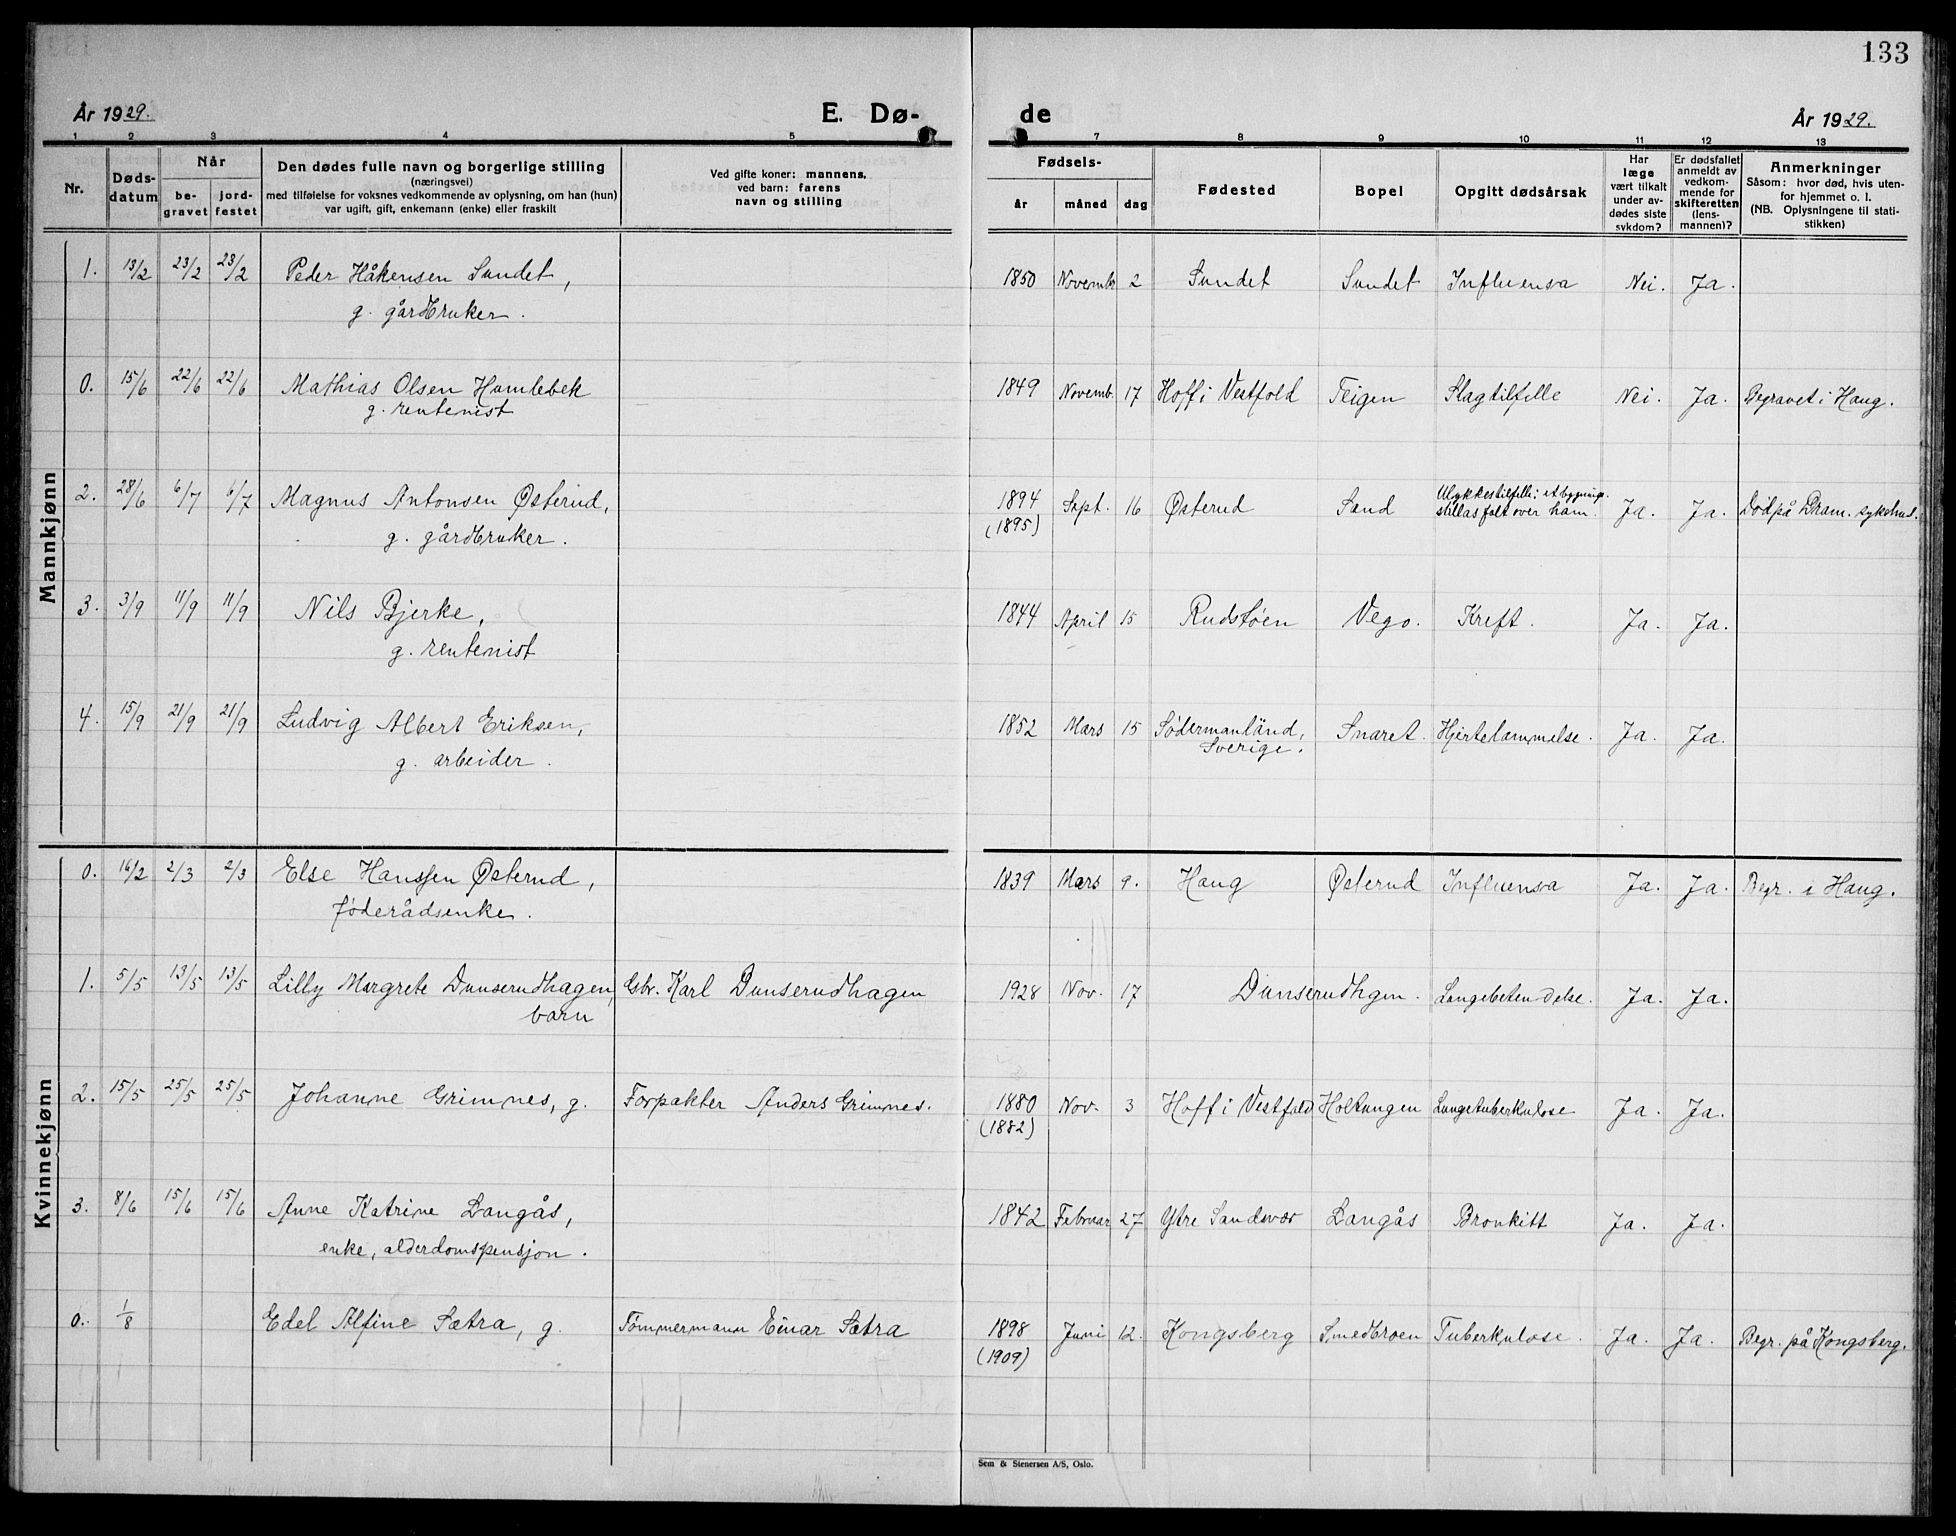 133
År 1929.
E. Dø-
de
År 1929.
1 2 3 4 5 7 8 9 10 11 12 13
Nr.
Døds-
datum
Når
be-
gravet
jord-
festet
Den dødes fulle navn og borgerlige stilling
(næringsvei)
med tilføielse for voksnes vedkommende av oplysning, om han (hun)
var ugift, gift, enkemann (enke) eller fraskilt
Ved gifte koner: mannens,
ved barn: farens
navn og stilling
Fødsels-
år
måned
dag
Fødested
Bopel
Opgitt dødsårsak
Har
læge
vært tilkalt
under av-
dødes siste
sykdom?
Er dødsfallet
anmeldt av
vedkom-
mende for
skifteretten
(lens-
mannen)?
Anmerkninger
Såsom: hvor død, hvis uten-
for hjemmet o. l.
(NB. Oplysningene til stati-
stikken)
Mannkjønn
1. 13/2 23/2 23/2 Peder Håkensen Sundet, 1850 Novemb. 2 Sundet Sundet Influensa Nei. Ja.
g. gårdbruker.
0. 15/6 22/6 22/6 Mathias Olsen Hamlebek 1849 Novemb. 17 Hoff i Vestfold Teigen Slagtilfelle Nei. Ja. Begravet i Haug.
g. rentenist
2. 28/6 6/7 6/7 Magnus Antonsen Østerud, 1894 Sept. 16 Østerud Sand Ulykkestilfelle: et bygnings- Ja. Ja. Død på Dram. sykehus.
g. gårdbruker. (1895) stillas falt over ham.
3. 3/9 11/9 11/9 Nils Bjerke, 1844 April 15 Rudstøen Vego. Kreft. Ja. Ja.
g. rentenist
4. 15/9 21/9 21/9 Ludvig Albert Eriksen, 1852 Mars 15 Södermanländ, Snaret. Hjertelammelse. Ja. Ja.
g. arbeider. Sverige.
Kvinnekjønn
0. 16/2 2/3 2/3 Else Hanssen Østerud, 1839 Mars 9. Haug Østerud Influensa Ja. Ja. Begr. i Haug.
føderådsenke.
1. 5/5 13/5 13/5 Lilly Margrete Dunserudhagen, Gbr. Karl Dunserudhagen 1928 Nov. 17 Dunserudhgen. Lungebetendelse. Ja. Ja.
barn
2. 15/5 25/5 25/5 Johanne Grimnes, g. Forpakter Anders Grimnes. 1880 Nov. 3 Hoff i Vestfold Holtungen Lungetuberkulose Ja. Ja.
(1882)
3. 8/6 15/6 15/6 Anne Katrine Langås, 1842 Februar 27 Ytre Sandsvær Langås Bronkitt Ja. Ja.
enke, alderdomspensjon.
0. 1/8 Edel Alfine Sætra, g. Tømmermann Einar Sætra 1898 Juni 12. Kongsberg Smedbroen Tuberkulose. Ja. Ja. Begr. på Kongsberg.
(1909)
Sem & Stenersen A/S, Oslo.